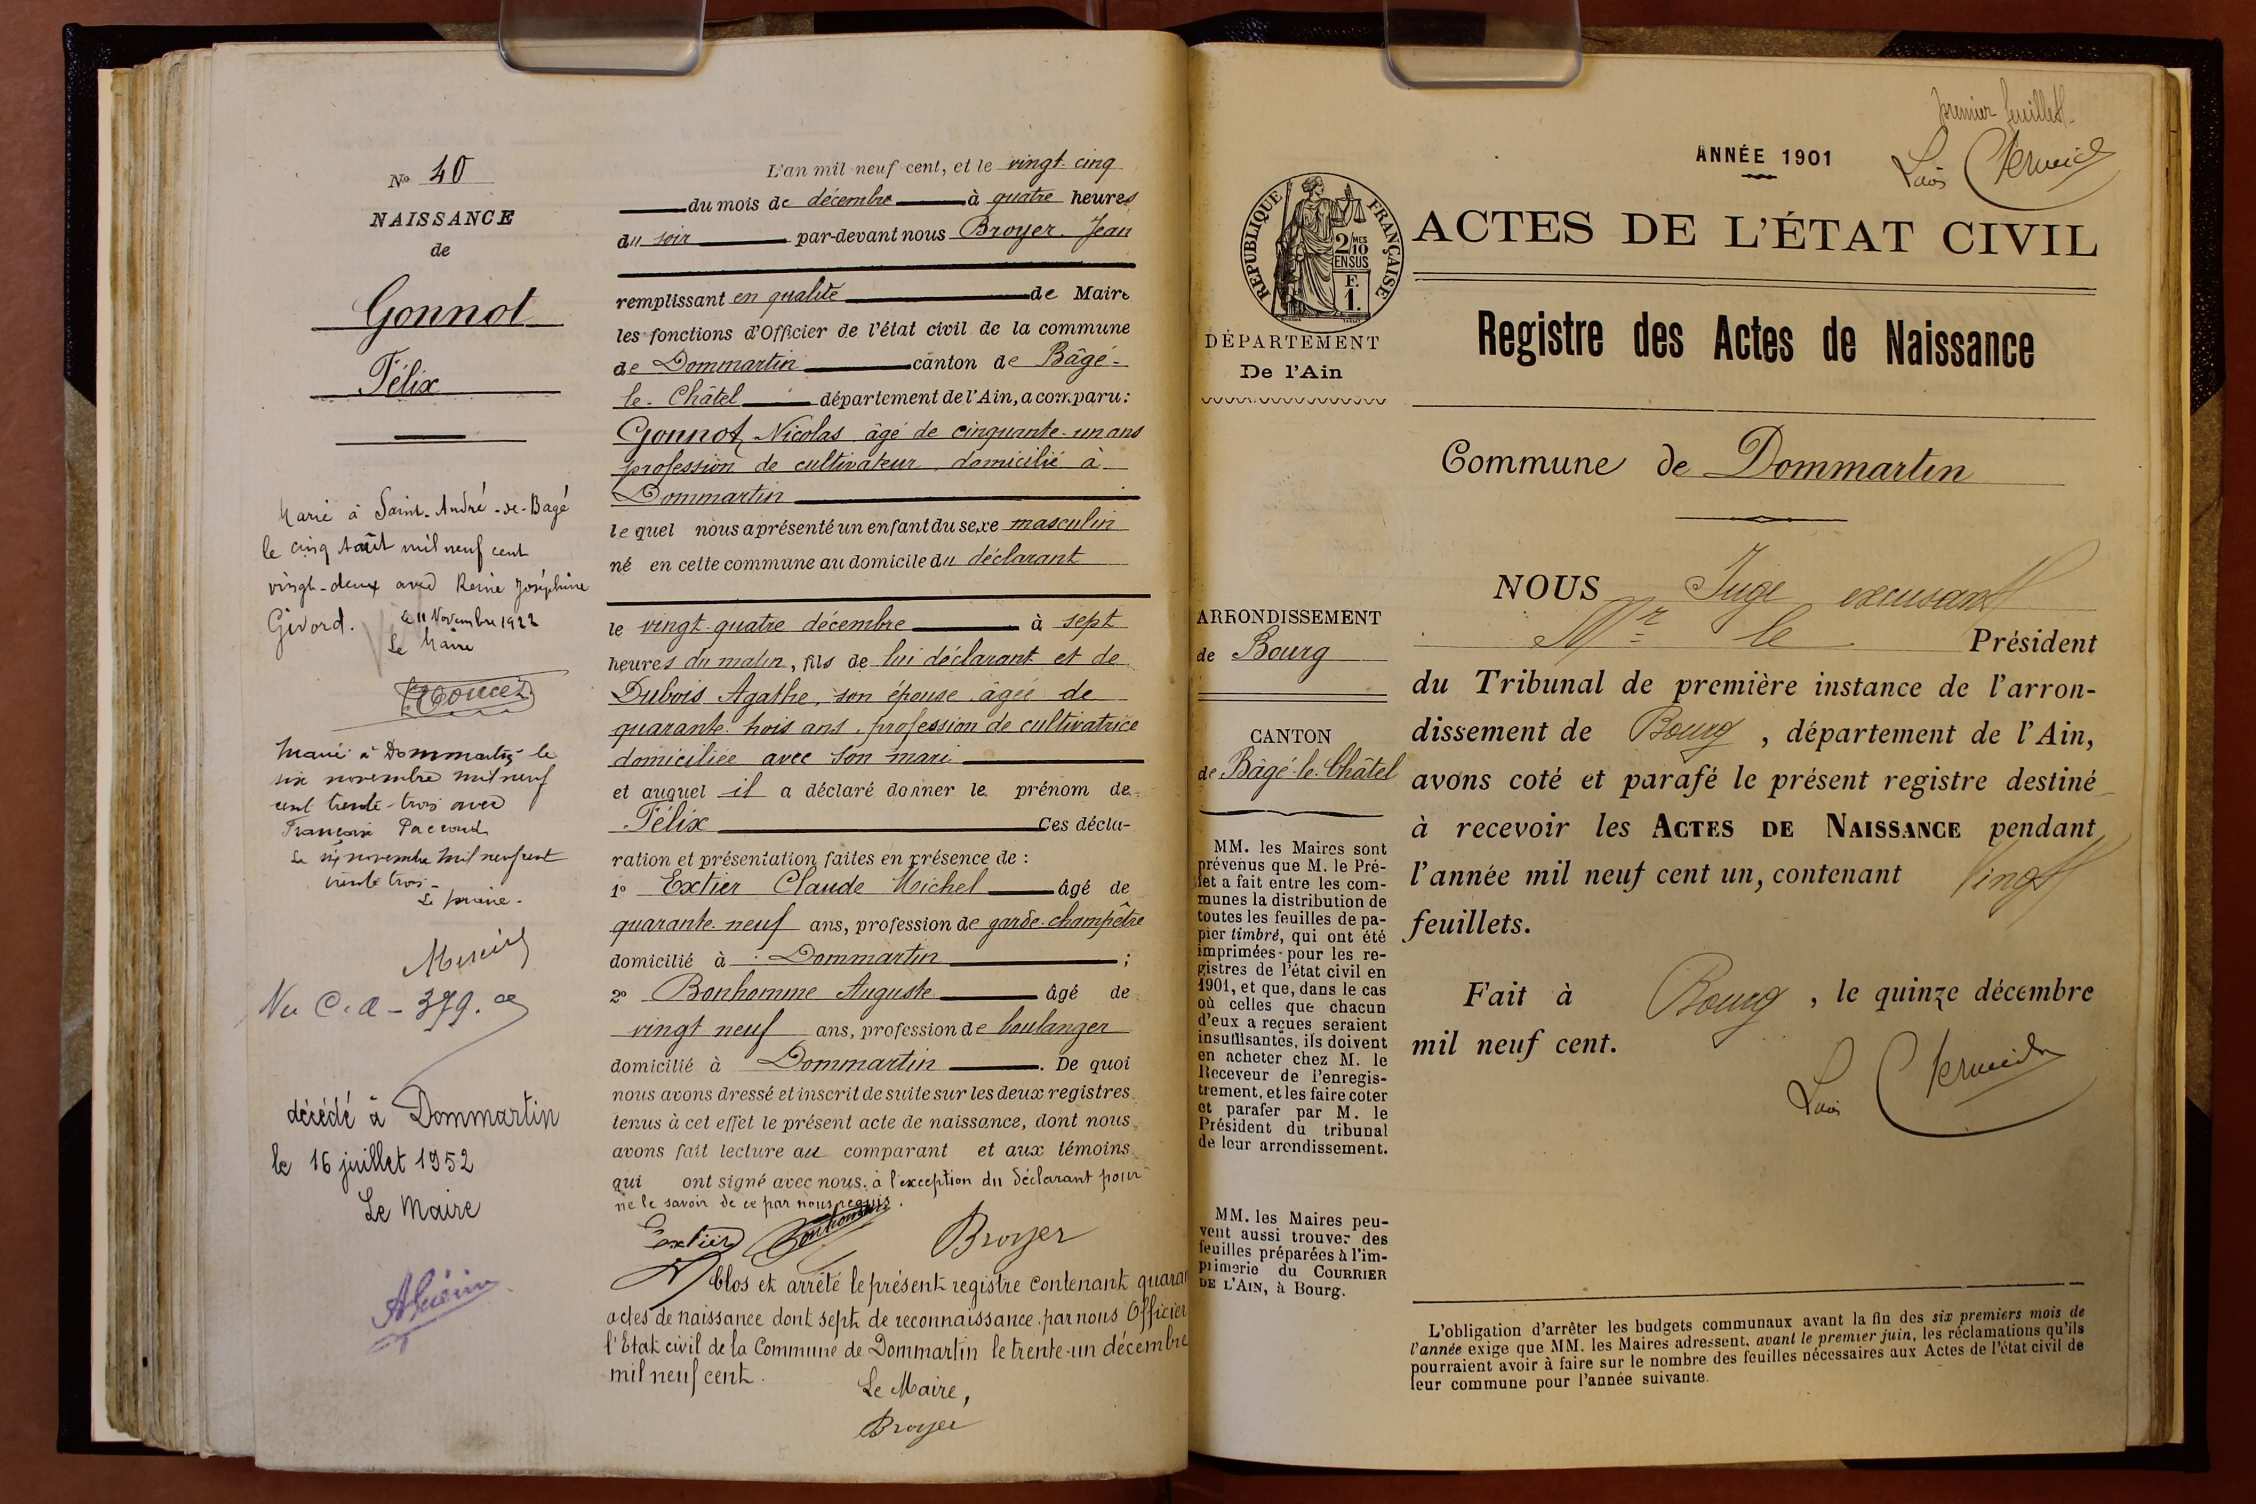 No 40
NAISSANCE
de
Gonnot
Félix
Marié à Saint-André-de-Bagé
le cinq Août mil neuf cent
vingt-deux avec Reine Joséphine
Givord. le 11 Novembre 1922
Le Maire
Marié à Dommartin le
six novembre mil neuf
cent trente-trois avec
Françoise Paccoud
Le six novembre mil neuf cent
trente trois
Le maire.
décédé à Dommartin
le 16 juillet 1952
Le Maire
L'an mil neuf cent, et le vingt-cinq
du mois de décembre à quatre heures
du soir par-devant nous Broyer Jean
remplissant en qualité de Maire
les fonctions d'Officier de l'état civil de la commune
de Dommartin canton de Bâgé-
le-Châtel département de l'Ain, a comparu:
Gonnot Nicolas âgé de cinquante-un ans
profession de cultivateur domicilié à
Dommartin
lequel nous a présenté un enfant du sexe masculin
né en cette commune au domicile du déclarant
le vingt-quatre décembre à sept
heures du matin, fils de lui déclarant et de
Dubois Agathe, son épouse âgée de
quarante-trois ans, profession de cultivatrice
domiciliée avec son mari
et auquel il a déclaré donner le prénom de
Félix Ces décla-
ration et présentation faites en présence de :
1o Extier Claude Michel âgé de
quarante-neuf ans, profession de garde-champêtre
domicilié à Dommartin ;
2o Bonhomme Auguste âgé de
vingt neuf ans, profession de boulanger
domicilié à Dommartin . De quoi
nous avons dressé et inscrit de suite sur les deux registres
tenus à cet effet le présent acte de naissance, dont nous
avons fait lecture au comparant et aux témoins
qui ont signé avec nous, à l'exception du déclarant pour
ne le savoir de ce par nous requis.
Extier Bonhomme Broyer
Clos et arrêté le présent registre contenant quaran
actes de naissance dont sept de reconnaissance par nous Officier
l'Etat civil de la Commune de Dommartin le trente-un décembre
mil neuf cent.
Le Maire,
Broyer
premier feuillet
ANNÉE 1901
RÉPUBLIQUE FRANÇAISE
2/10 MES
EN SUS
F.
1.
ACTES DE L'ÉTAT CIVIL
DÉPARTEMENT
De l'Ain
Registre des Actes de Naissance
Commune de Dommartin
ARRONDISSEMENT
de Bourg
CANTON
de Bâgé-le-Châtel
MM. les Maires sont
prévenus que M. le Pré-
fet a fait entre les com-
munes la distribution de
toutes les feuilles de pa-
pier timbré, qui ont été
imprimées pour les re-
gistres de l'état civil en
1901, et que, dans le cas
où celles que chacun
d'eux a reçues seraient
insuffisantes, ils doivent
en acheter chez M. le
Receveur de l'enregis-
trement, et les faire coter
et parafer par M. le
Président du tribunal
de leur arrondissement.
MM. les Maires peu-
vent aussi trouver des
feuilles préparées à l'im-
primerie du COURRIER
DE L'AIN, à Bourg.
NOUS Juge excusant
Mr le Président
du Tribunal de première instance de l'arron-
dissement de Bourg , département de l'Ain,
avons coté et parafé le présent registre destiné
à recevoir les ACTES DE NAISSANCE pendant
l'année mil neuf cent un, contenant Vingt
feuillets.
Fait à Bourg , le quinze décembre
mil neuf cent.
L'obligation d'arrêter les budgets communaux avant la fin des six premiers mois de
l'année exige que MM. les Maires adressent, avant le premier juin, les réclamations qu'ils
pourraient avoir à faire sur le nombre des feuilles nécessaires aux Actes de l'état civil de
leur commune pour l'année suivante.